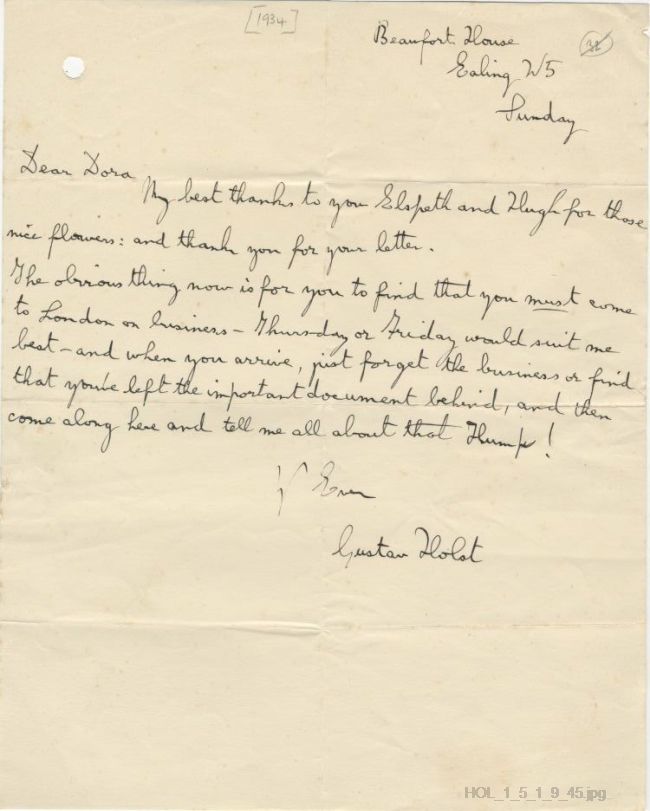 [1934]
Beaufort House
Ealing W5
Sunday
Dear Dora
My best thanks to you Elspeth and Hugh for those
nice flowers: and thank you for your letter.
The obvious thing now is for you to find that you must come
to London on business – Thursday or Friday would suit me
best – and when you arrive, just forget the business or find
that you've left the important document behind, and then
come along here and tell me all about that Hump!
Y Ever
Gustav Holst
HOL_1_5_1_9_45.jpg